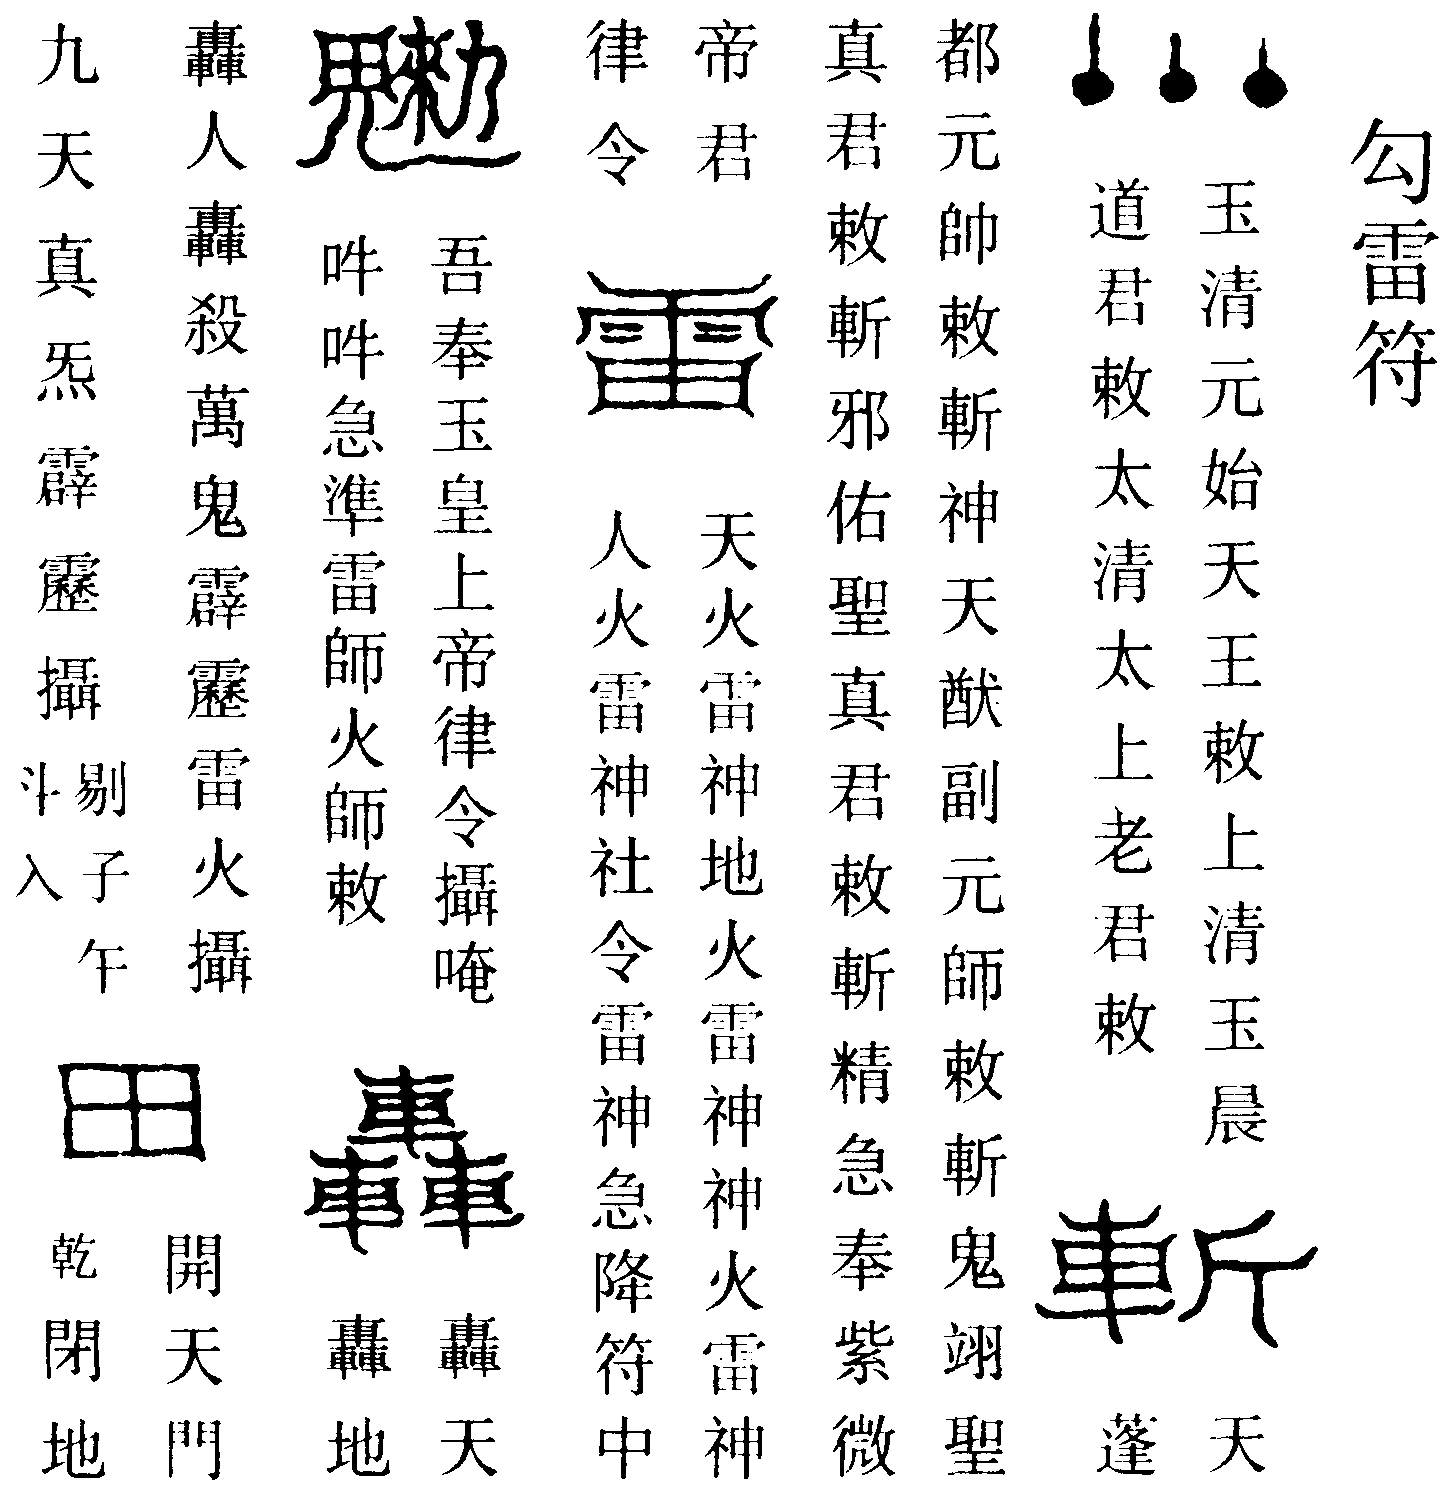 勾雷符
玉清元始天王敕上清玉晨
道君敕太清太上老君敕
斬
天
蓬
都元帥敕斬神天猷副元師敕斬鬼翊聖
真君敕斬邪佑聖真君敕斬精急奉紫微
帝君
律令
雷
天火雷神地火雷神神火雷神
人火雷神社令雷神急降符中
吾奉玉皇上帝律令攝唵
吽吽急準雷師火師敕
轟
轟天
轟地
轟人轟殺萬鬼霹靂雷火攝
九天真炁霹靂攝
剔子午
斗入
田
開天門
乾閉地